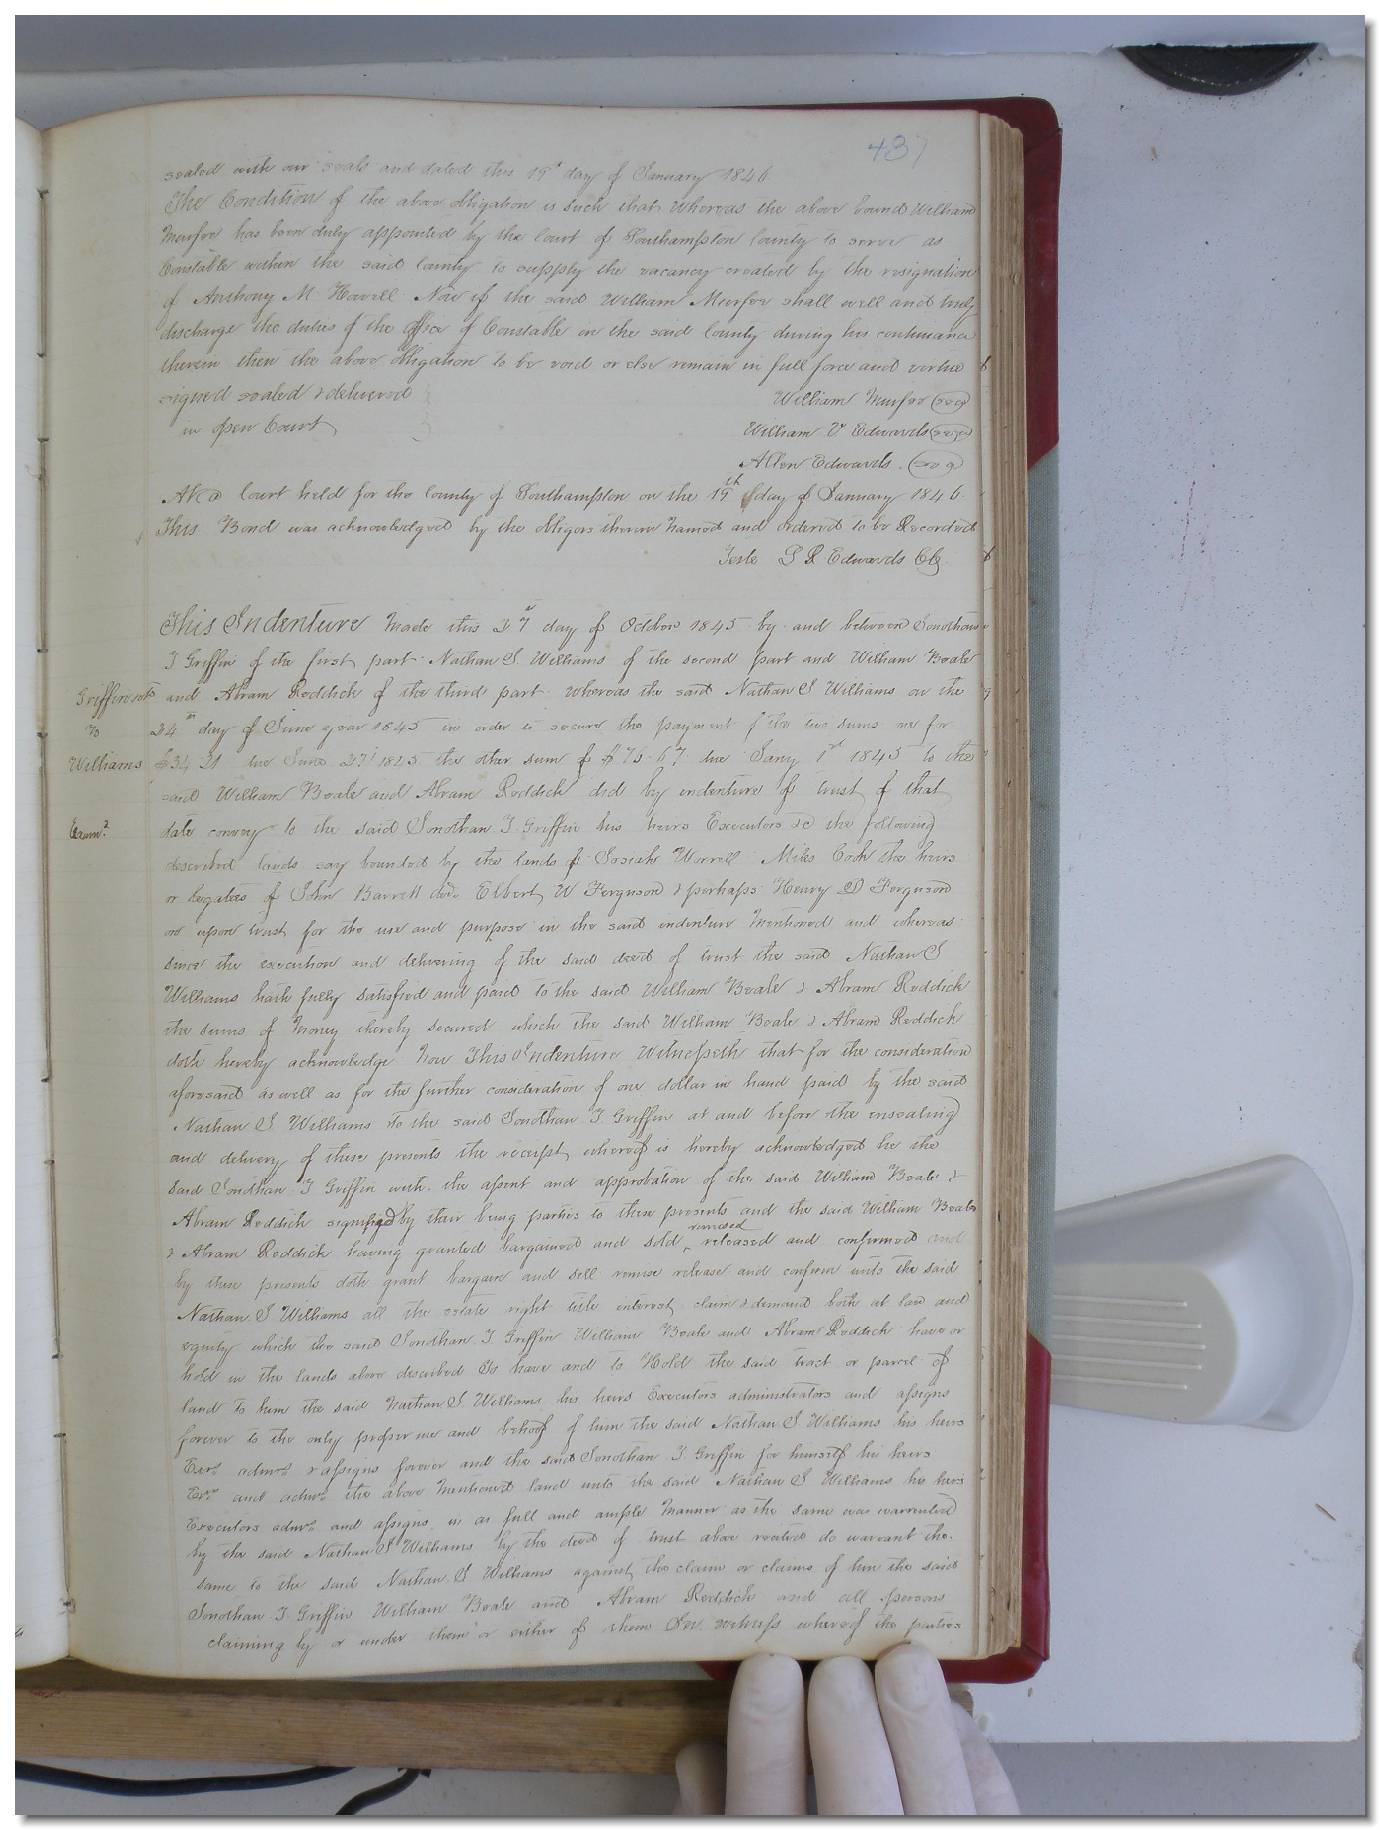 487
sealed with our seals and dated this 19th day of January 1846
The Condition of the above obligation is such that whereas the above bound William
Murfee has been duly appointed by the Court of Southampton County to serve as
Constable within the said County to supply the vacancy created by the resignation
of Anthony M. Howell Now if the said William Murfee shall well and truly
discharge the duties of the office of Constable in the said County during his continuance
therein then the above obligation to be void or else remain in full force and virtue
signed sealed & delivered
William Murfee (seal)
in open Court
William V Edwards (seal)
Allen Edwards (seal)
At a Court held for the County of Southampton on the 19th day of January 1846
This Bond was acknowledged by the obligors therein named and ordered to be Recorded
Teste L R Edwards Clk
This Indenture made this 27th day of October 1845 by and between Jonathan
T Griffin of the first part Nathan S. Williams of the second part and William Beale
Griffin
and Abram Reddick of the third part whereas the said Nathan S Williams on the
to
24th day of June year 1845 in order to secure the payment of the two sums one for
Williams
$34 21 due June 27 1845 the other sum of $75.67 due Jany 1st 1845 to the
said William Beale and Abram Reddick did by indenture of trust of that
Examd
date convey to the said Jonathan T. Griffin his heirs Executors &c the following
described lands say bounded by the lands of Josiah Worrell Miles Cook the heirs
or legatees of John Barrett decd Elbert W Ferguson & perhaps Henry D Ferguson
upon trust for the use and purpose in the said indenture mentioned and whereas
since the execution and delivering of the said deed of trust the said Nathan S
Williams hath fully satisfied and paid to the said William Beale & Abram Reddick
the sums of money thereby secured which the said William Beale & Abram Reddick
doth hereby acknowledge Now This Indenture Witnesseth that for the consideration
aforesaid as well as for the further consideration of one dollar in hand paid by the said
Nathan S Williams to the said Jonathan T. Griffin at and before the ensealing
and delivery of these presents the receipt whereof is hereby acknowledged he the
said Jonathan T Griffin with the assent and approbation of the said William Beale &
Abram Reddick signified by their being parties to these presents and the said William Beale
& Abram Reddick having granted bargained and sold remised released and confirmed and
by these presents doth grant bargain and sell remise release and confirm unto the said
Nathan S Williams all the estate right title interest claim & demand both at law and
equity which the said Jonathan T Griffin William Beale and Abram Reddick have or
hold in the lands above described To have and to Hold the said tract or parcel of
land to him the said Nathan S. Williams his heirs Executors administrators and assigns
forever to the only proper use and behoof of him the said Nathan S Williams his heirs
Exrs admrs & assigns forever and the said Jonathan T Griffin for himself his heirs
Exrs and admrs the above mentioned land unto the said Nathan S Williams his heirs
Executors admrs and assigns in as full and ample manner as the same was warranted
by the said Nathan S Williams by the deed of trust above recited do warrant the
same to the said Nathan S Williams against the claim or claims of him the said
Jonathan T. Griffin William Beale and Abram Reddick and all persons
claiming by or under them or either of them In witness whereof the parties